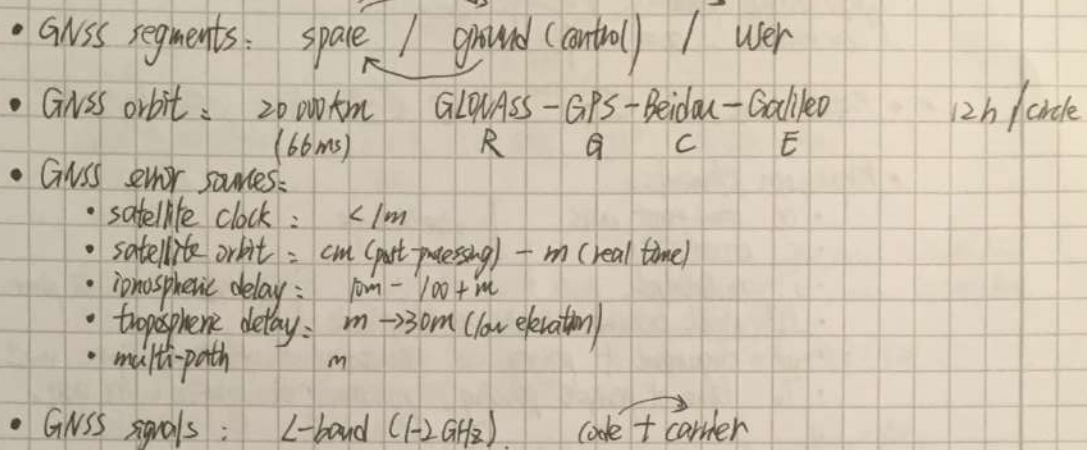 • GNSS segments: space / ground (control) / user
• GNSS orbit: 20 000 km GLONASS - GPS - Beidou - Galileo 12h / circle
(66 ms) R G C E
• GNSS error sources:
• satellite clock: < 1m
• satellite orbit: cm (post-processing) - m (real time)
• ionospheric delay: 10m - 100+ m
• tropospheric delay: m → 30m (low elevation)
• multi-path m
• GNSS signals: L-band (1-2 GHz) code + carrier